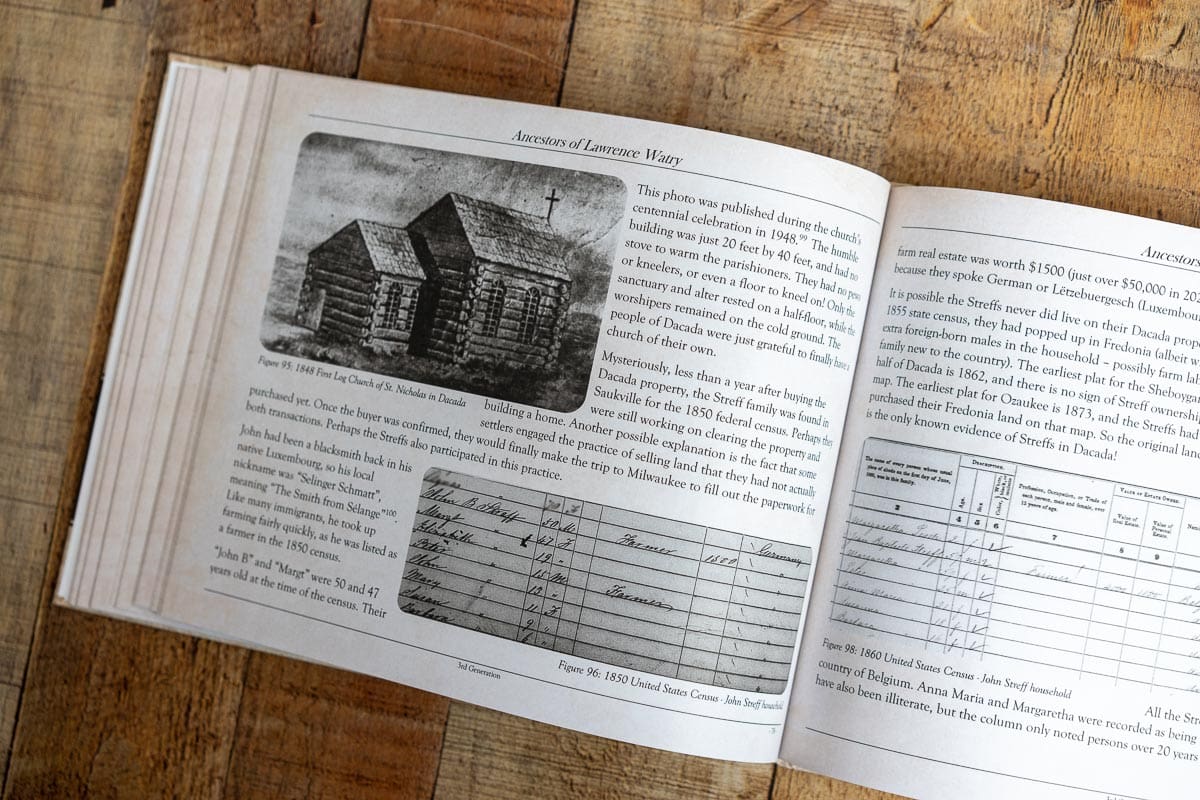 Ancestors of Lawrence Watry
This photo was published during the church's
centennial celebration in 1948.99 The humble
building was just 20 feet by 40 feet, and had no
stove to warm the parishioners. They had no pews
or kneelers, or even a floor to kneel on! Only the
sanctuary and alter rested on a half-floor, while the
worshipers remained on the cold ground. The
people of Dacada were just grateful to finally have a
church of their own.
Figure 95: 1848 First Log Church of St. Nicholas in Dacada
Mysteriously, less than a year after buying the
Dacada property, the Streff family was found in
Saukville for the 1850 federal census. Perhaps they
were still working on clearing the property and
building a home. Another possible explanation is the fact that some
settlers engaged the practice of selling land that they had not actually
purchased yet. Once the buyer was confirmed, they would finally make the trip to Milwaukee to fill out the paperwork for
both transactions. Perhaps the Streffs also participated in this practice.
John had been a blacksmith back in his
native Luxembourg, so his local
nickname was "Selinger Schmatt",
meaning "The Smith from Sélange"100
Like many immigrants, he took up
farming fairly quickly, as he was listed as
a farmer in the 1850 census.
"John B" and "Margt" were 50 and 47
years old at the time of the census. Their
John B Streff 50 M Farmer 1500 Germany
Margt 47 F
Elizabeth 19
Peter 15 M Farmer
John 13
Mary 11 F
Susan 9
Barbara 6
Figure 96: 1850 United States Census - John Streff household
3rd Generation
Ancestors
farm real estate was worth $1500 (just over $50,000 in 202
because they spoke German or Lëtzebuergesch (Luxembou
It is possible the Streffs never did live on their Dacada prope
1855 state census, they had popped up in Fredonia (albeit w
extra foreign-born males in the household – possibly farm la
family new to the country). The earliest plat for the Sheboyga
half of Dacada is 1862, and there is no sign of Streff ownersh
map. The earliest plat for Ozaukee is 1873, and the Streffs had
purchased their Fredonia land on that map. So the original land
is the only known evidence of Streffs in Dacada!
The name of every person whose usual
place of abode on the first day of June,
1860, was in this family.
Description.
Age.
Sex
Color
Profession, Occupation, or Trade of
each person, male and female, over
15 years of age.
Value of Estate Owned.
Value of
Real Estate.
Value of
Personal
Estate.
3 4 5 6 7 8 9
Farmer
Figure 98: 1860 United States Census - John Streff household
All the Stre
country of Belgium. Anna Maria and Margaretha were recorded as being
have also been illiterate, but the column only noted persons over 20 years